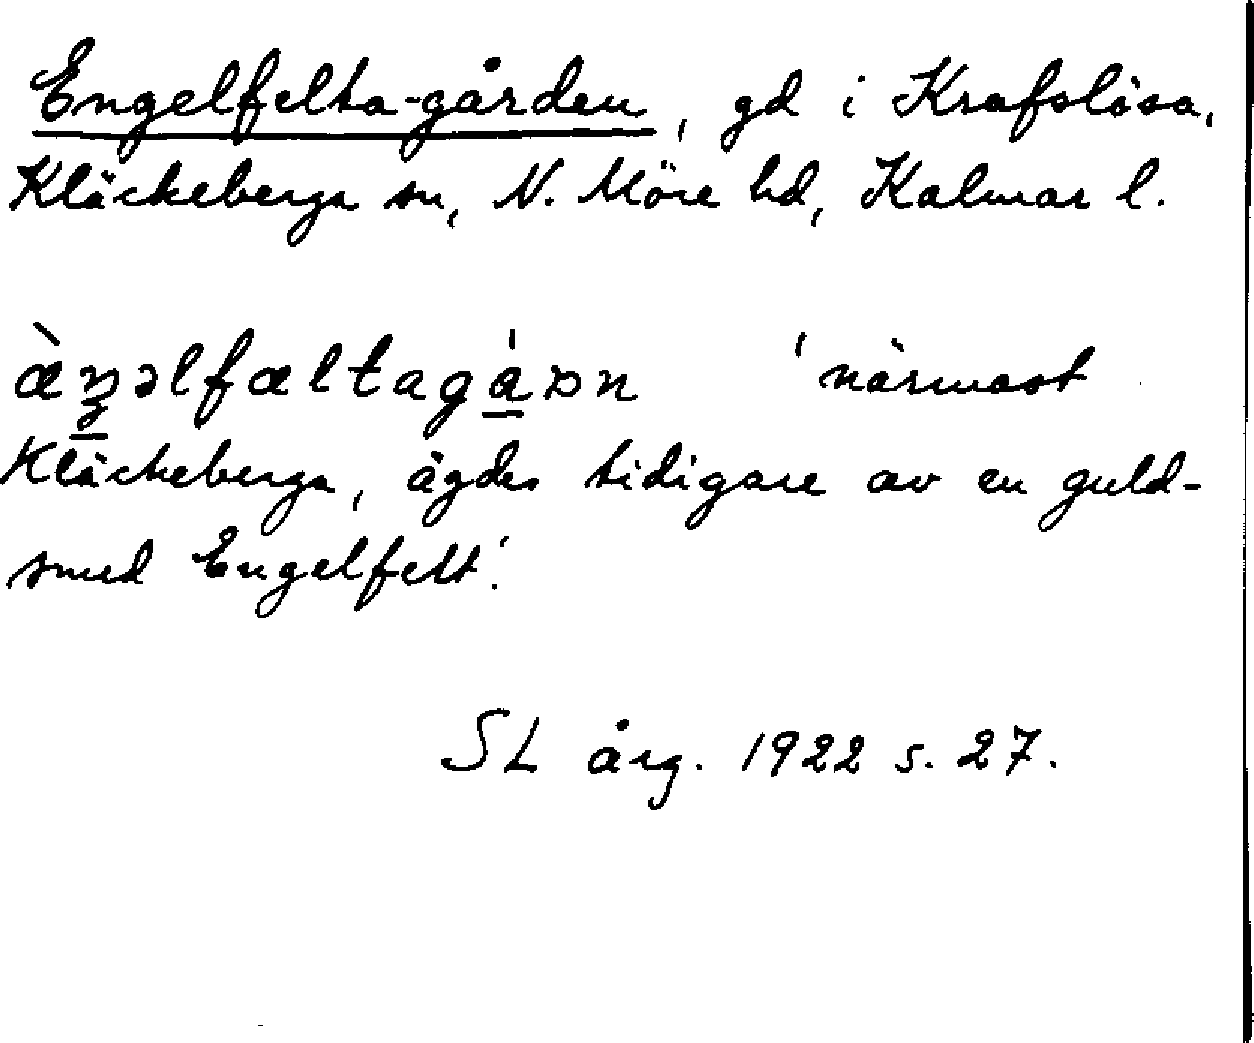 Engelfelta-gården, gd i Krafslösa,
Kläckeberga sn, N. Möre hd, Kalmar l.
'närmast
Kläckeberga, ägdes tidigare av en guld-
smed Engelfelt'.
SL årg. 1922 s. 27.